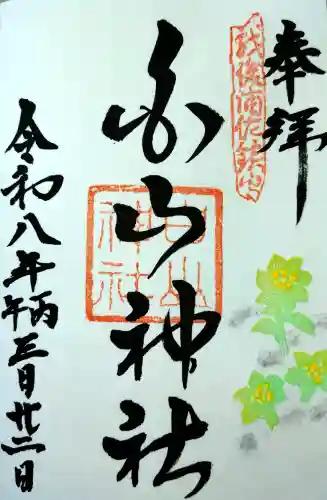 奉拝
越後浦佐鎮守
白山神社
白山神社
令和八年丙午三月廿二日